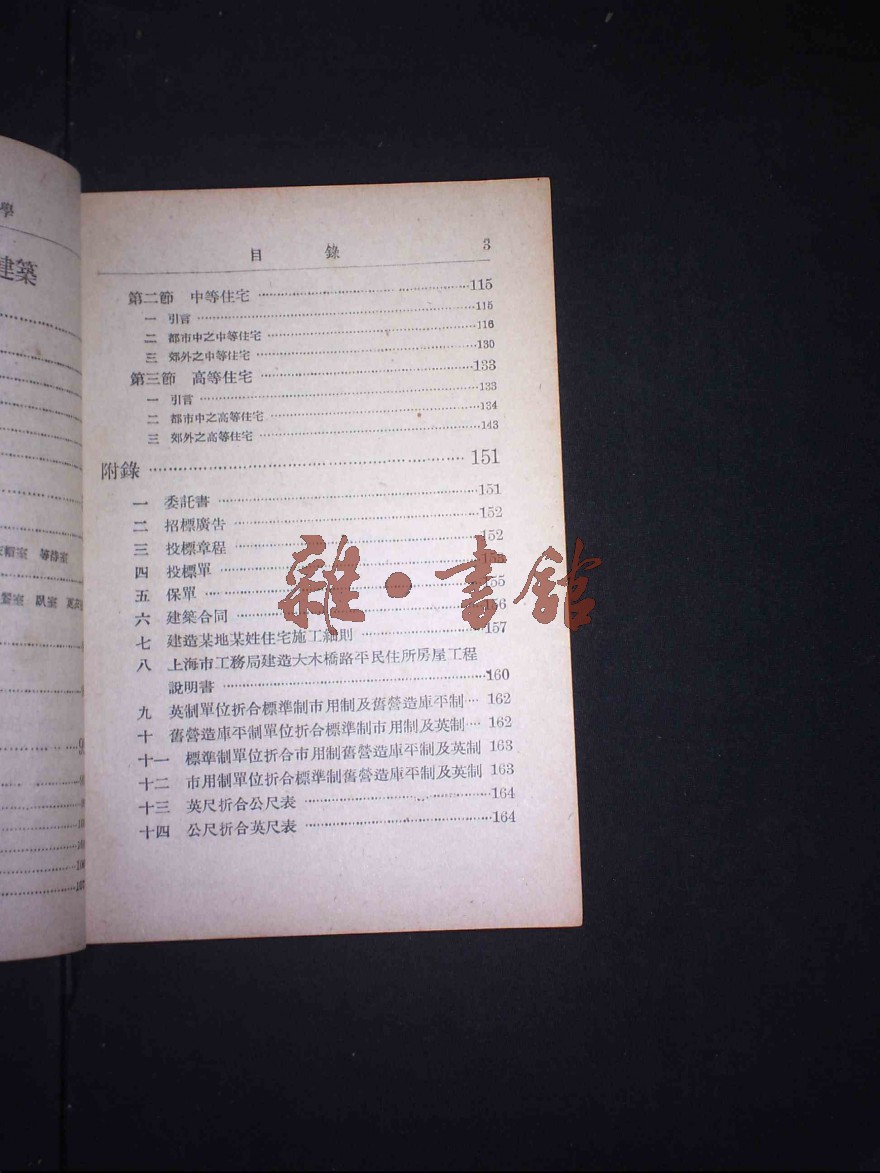 學
建築
等待室
臥室
目錄 3
第二節 中等住宅 ……115
一 引言 ……115
二 都市中之中等住宅 ……116
三 郊外之中等住宅 ……130
第三節 高等住宅 ……133
一 引言 ……133
二 都市中之高等住宅 ……134
三 郊外之高等住宅 ……143
附錄 ……151
一 委託書 ……151
二 招標廣告 ……152
三 投標章程 ……152
四 投標單 ……
五 保單 ……155
六 建築合同 ……156
七 建造某地某姓住宅施工細則 ……157
八 上海市工務局建造大木橋路平民住所房屋工程
說明書 ……160
九 英制單位折合標準制市用制及舊營造庫平制 … 162
十 舊營造庫平制單位折合標準制市用制及英制 … 162
十一 標準制單位折合市用制舊營造庫平制及英制 163
十二 市用制單位折合標準制舊營造庫平制及英制 163
十三 英尺折合公尺表 ……164
十四 公尺折合英尺表 ……164
雜·書館